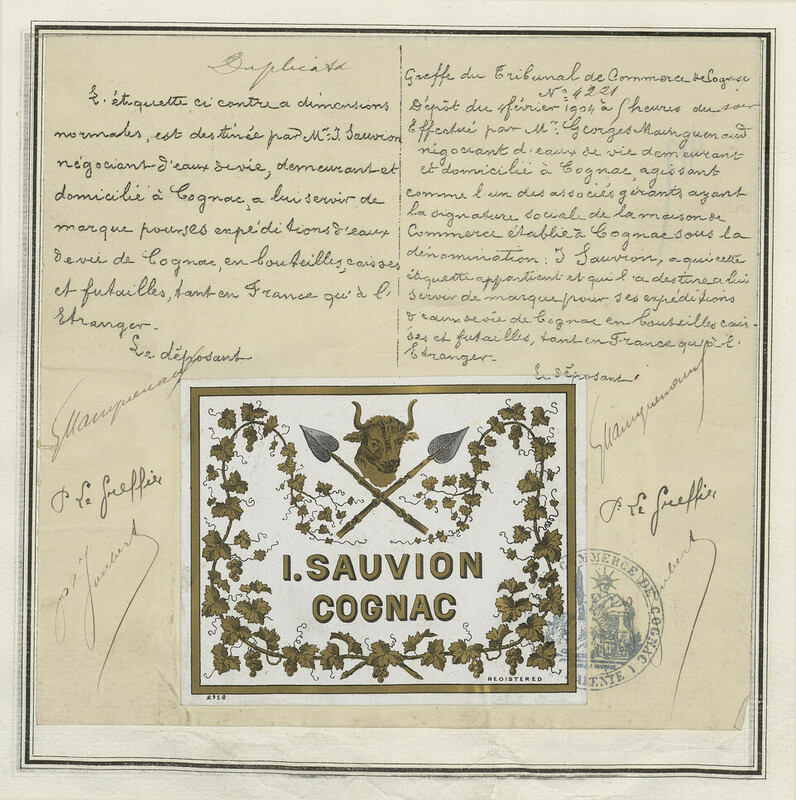 Duplicata
L'étiquette ci contre a dimensions
normales, est destinée par Mr. I Sauvion
négociant d'eaux de vie, demeurant et
domicilié à Cognac, a lui servir de
marque pour ses expéditions d'eaux
de vie de Cognac, en bouteilles, caisses
et futailles, tant en France qu'à l'
Etranger.
Le déposant
GMainguenaud
P. Le Greffier
Joubert
Greffe du Tribunal de Commerce de Cognac
No 4221
Dépôt du 4 février 1904 à 5 heures du soir
Effectué par Mr. Georges Mainguenaud
négociant d'eaux de vie demeurant
et domicilié à Cognac, agissant
comme l'un des associés gérants ayant
la signature sociale de la maison de
Commerce établie à Cognac sous la
dénomination: I Sauvion, a qui cette
étiquette appartient et qui l'a destine a lui
servir de marque pour ses expéditions
d'eaux de vie de Cognac en bouteilles cais-
ses et futailles, tant en France qu'à l'
Etranger.
Le Déposant
GMainguenaud
P. Le Greffier
I. SAUVION
COGNAC
REGISTERED
2958
COMMERCE DE COGNAC